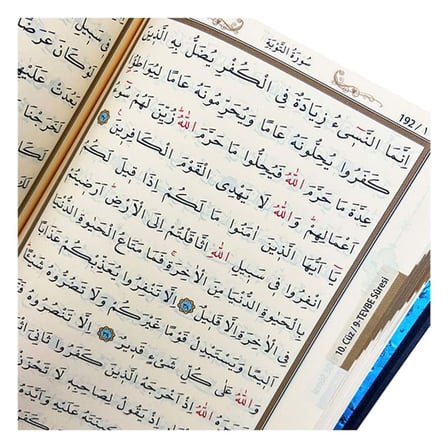 سورة التوبة
192 / ١
اِنَّمَا النَّسٖٓيءُ زِيَادَةٌ فِي الْكُفْرِ يُضَلُّ بِهِ الَّذٖينَ
كَفَرُوا يُحِلُّونَهُ عَامًا وَيُحَرِّمُونَهُ عَامًا لِيُوَاطِؤُ۫ا
عِدَّةَ مَا حَرَّمَ اللّٰهُ فَيُحِلُّوا مَا حَرَّمَ اللّٰهُ زُيِّنَ لَهُمْ سُوٓءُ
اَعْمَالِهِمْ وَاللّٰهُ لَا يَهْدِي الْقَوْمَ الْكَافِرٖينَ
يَٓا اَيُّهَا الَّذٖينَ اٰمَنُوا مَا لَكُمْ اِذَا قٖيلَ لَكُمُ
انْفِرُوا فٖي سَبٖيلِ اللّٰهِ اثَّاقَلْتُمْ اِلَى الْاَرْضِ اَرَضٖيتُمْ
بِالْحَيٰوةِ الدُّنْيَا مِنَ الْاٰخِرَةِ فَمَا مَتَاعُ الْحَيٰوةِ الدُّنْيَا
فِي الْاٰخِرَةِ اِلَّا قَلٖيلٌ اِلَّا تَنْفِرُوا يُعَذِّبْكُمْ عَذَابًا
اَلٖيمًا وَيَسْتَبْدِلْ قَوْمًا غَيْرَكُمْ وَلَا تَضُرُّوهُ شَيْـًٔا
وَاللّٰهُ عَلٰى كُلِّ شَيْءٍ قَدٖيرٌ اِلَّا تَنْصُرُوهُ
اللّٰهُ اِذْ اَخْرَجَهُ الَّذٖينَ كَفَرُوا ثَانِيَ
اِذْ يَقُولُ لِصَاحِبِهٖ لَا
عَلَيْهِ وَاَيَّدَهُ
10. Cüz / 9-TEVBE Sûresi